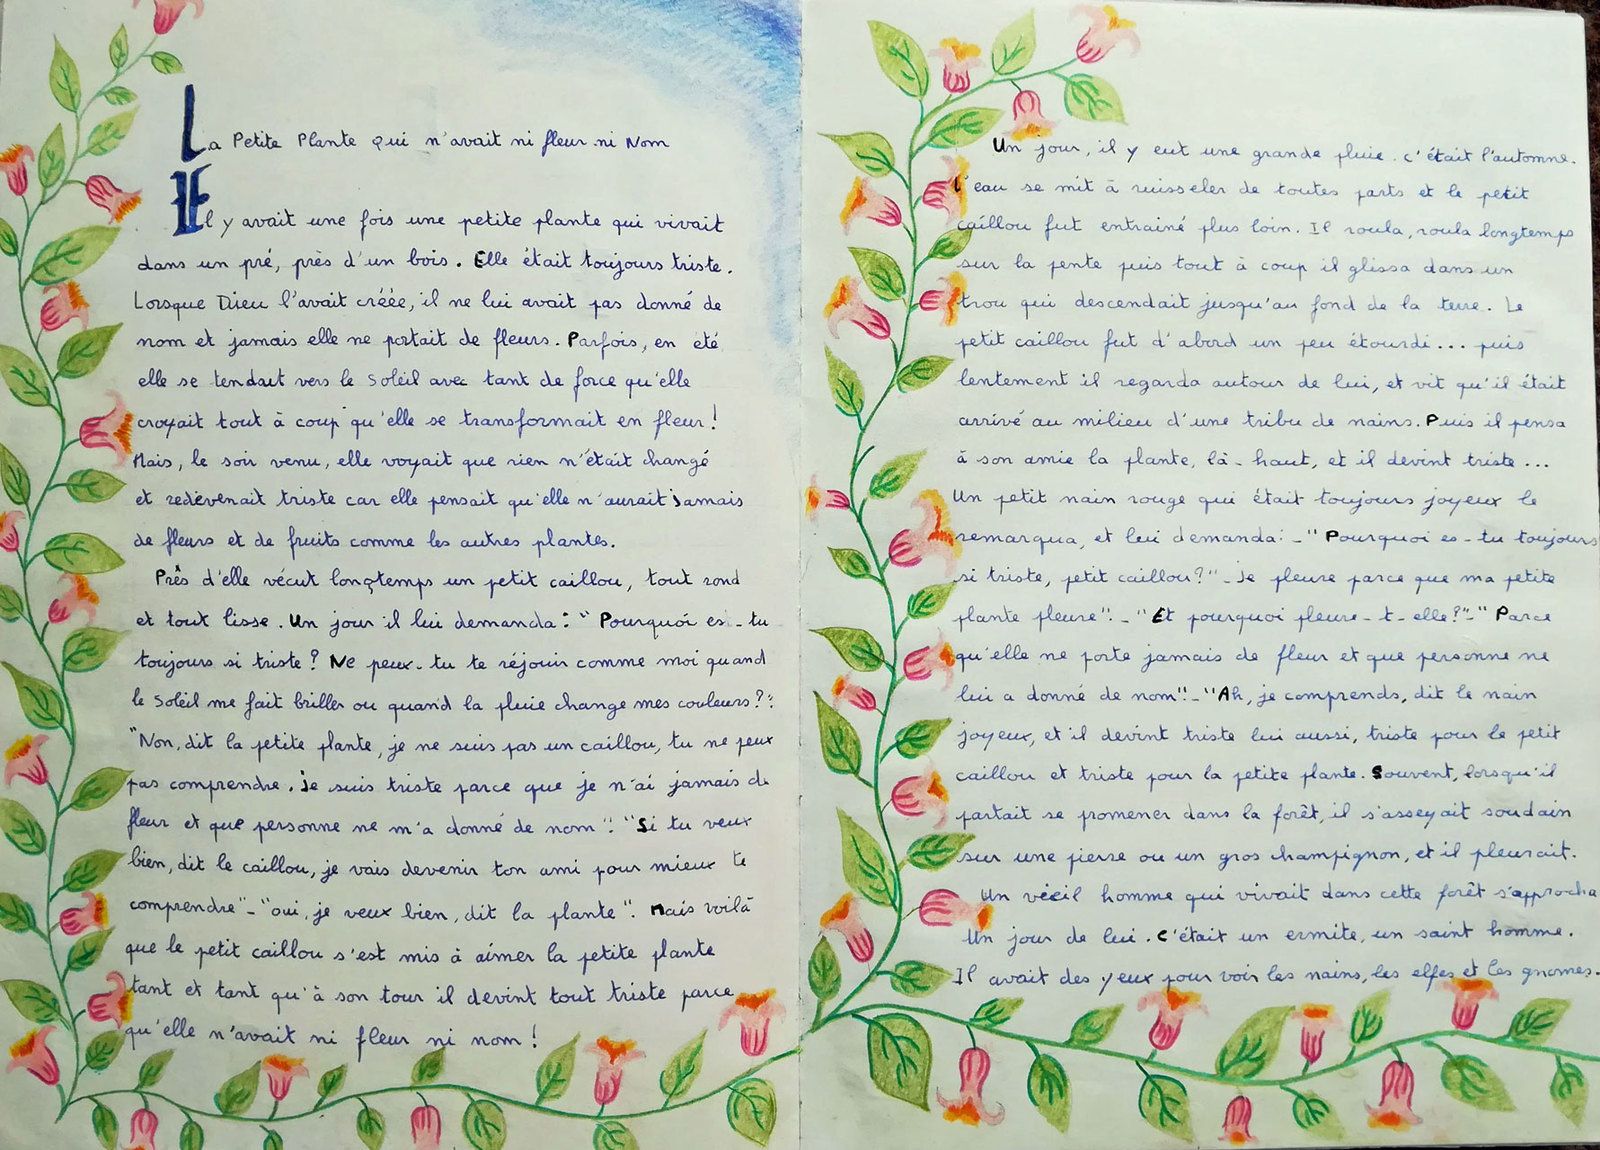 La Petite Plante Qui n'avait ni fleur ni Nom
Il y avait une fois une petite plante qui vivait
dans un pré, près d'un bois. Elle était toujours triste.
Lorsque Dieu l'avait créée, il ne lui avait pas donné de
nom et jamais elle ne portait de fleurs. Parfois, en été
elle se tendait vers le soleil avec tant de force qu'elle
croyait tout à coup qu'elle se transformait en fleur!
Mais, le soir venu, elle voyait que rien n'était changé
et redevenait triste car elle pensait qu'elle n'aurait jamais
de fleurs et de fruits comme les autres plantes.
Près d'elle vécut longtemps un petit caillou, tout rond
et tout lisse. Un jour il lui demanda: "Pourquoi es-tu
toujours si triste? Ne peux-tu te réjouir comme moi quand
le soleil me fait briller ou quand la pluie change mes couleurs?".
"Non, dit la petite plante, je ne suis pas un caillou, tu ne peux
pas comprendre. Je suis triste parce que je n'ai jamais de
fleur et que personne ne m'a donné de nom". "Si tu veux
bien, dit le caillou, je vais devenir ton ami pour mieux te
comprendre"-"oui, je veux bien, dit la plante". Mais voilà
que le petit caillou s'est mis à aimer la petite plante
tant et tant qu'à son tour il devint tout triste parce
qu'elle n'avait ni fleur ni nom!
Un jour, il y eut une grande pluie. C'était l'automne.
L'eau se mit à ruisseler de toutes parts et le petit
caillou fut entrainé plus loin. Il roula, roula longtemps
sur la pente puis tout à coup il glissa dans un
trou qui descendait jusqu'au fond de la terre. Le
petit caillou fut d'abord un peu étourdi... puis
lentement il regarda autour de lui, et vit qu'il était
arrivé au milieu d'une tribu de nains. Puis il pensa
à son amie la plante, là-haut, et il devint triste...
Un petit nain rouge qui était toujours joyeux le
remarqua, et lui demanda: -"Pourquoi es-tu toujours
si triste, petit caillou?"-Je pleure parce que ma petite
plante pleure".-"Et pourquoi pleure-t-elle?"-"Parce
qu'elle ne porte jamais de fleur et que personne ne
lui a donné de nom"-"Ah, je comprends, dit le nain
joyeux, et il devint triste lui aussi, triste pour le petit
caillou et triste pour la petite plante. Souvent, lorsqu'il
partait se promener dans la forêt, il s'asseyait soudain
sur une pierre ou un gros champignon, et il pleurait.
Un vieil homme qui vivait dans cette forêt s'approcha
Un jour de lui. C'était un ermite, un saint homme.
Il avait des yeux pour voir les nains, les elfes et les gnomes.